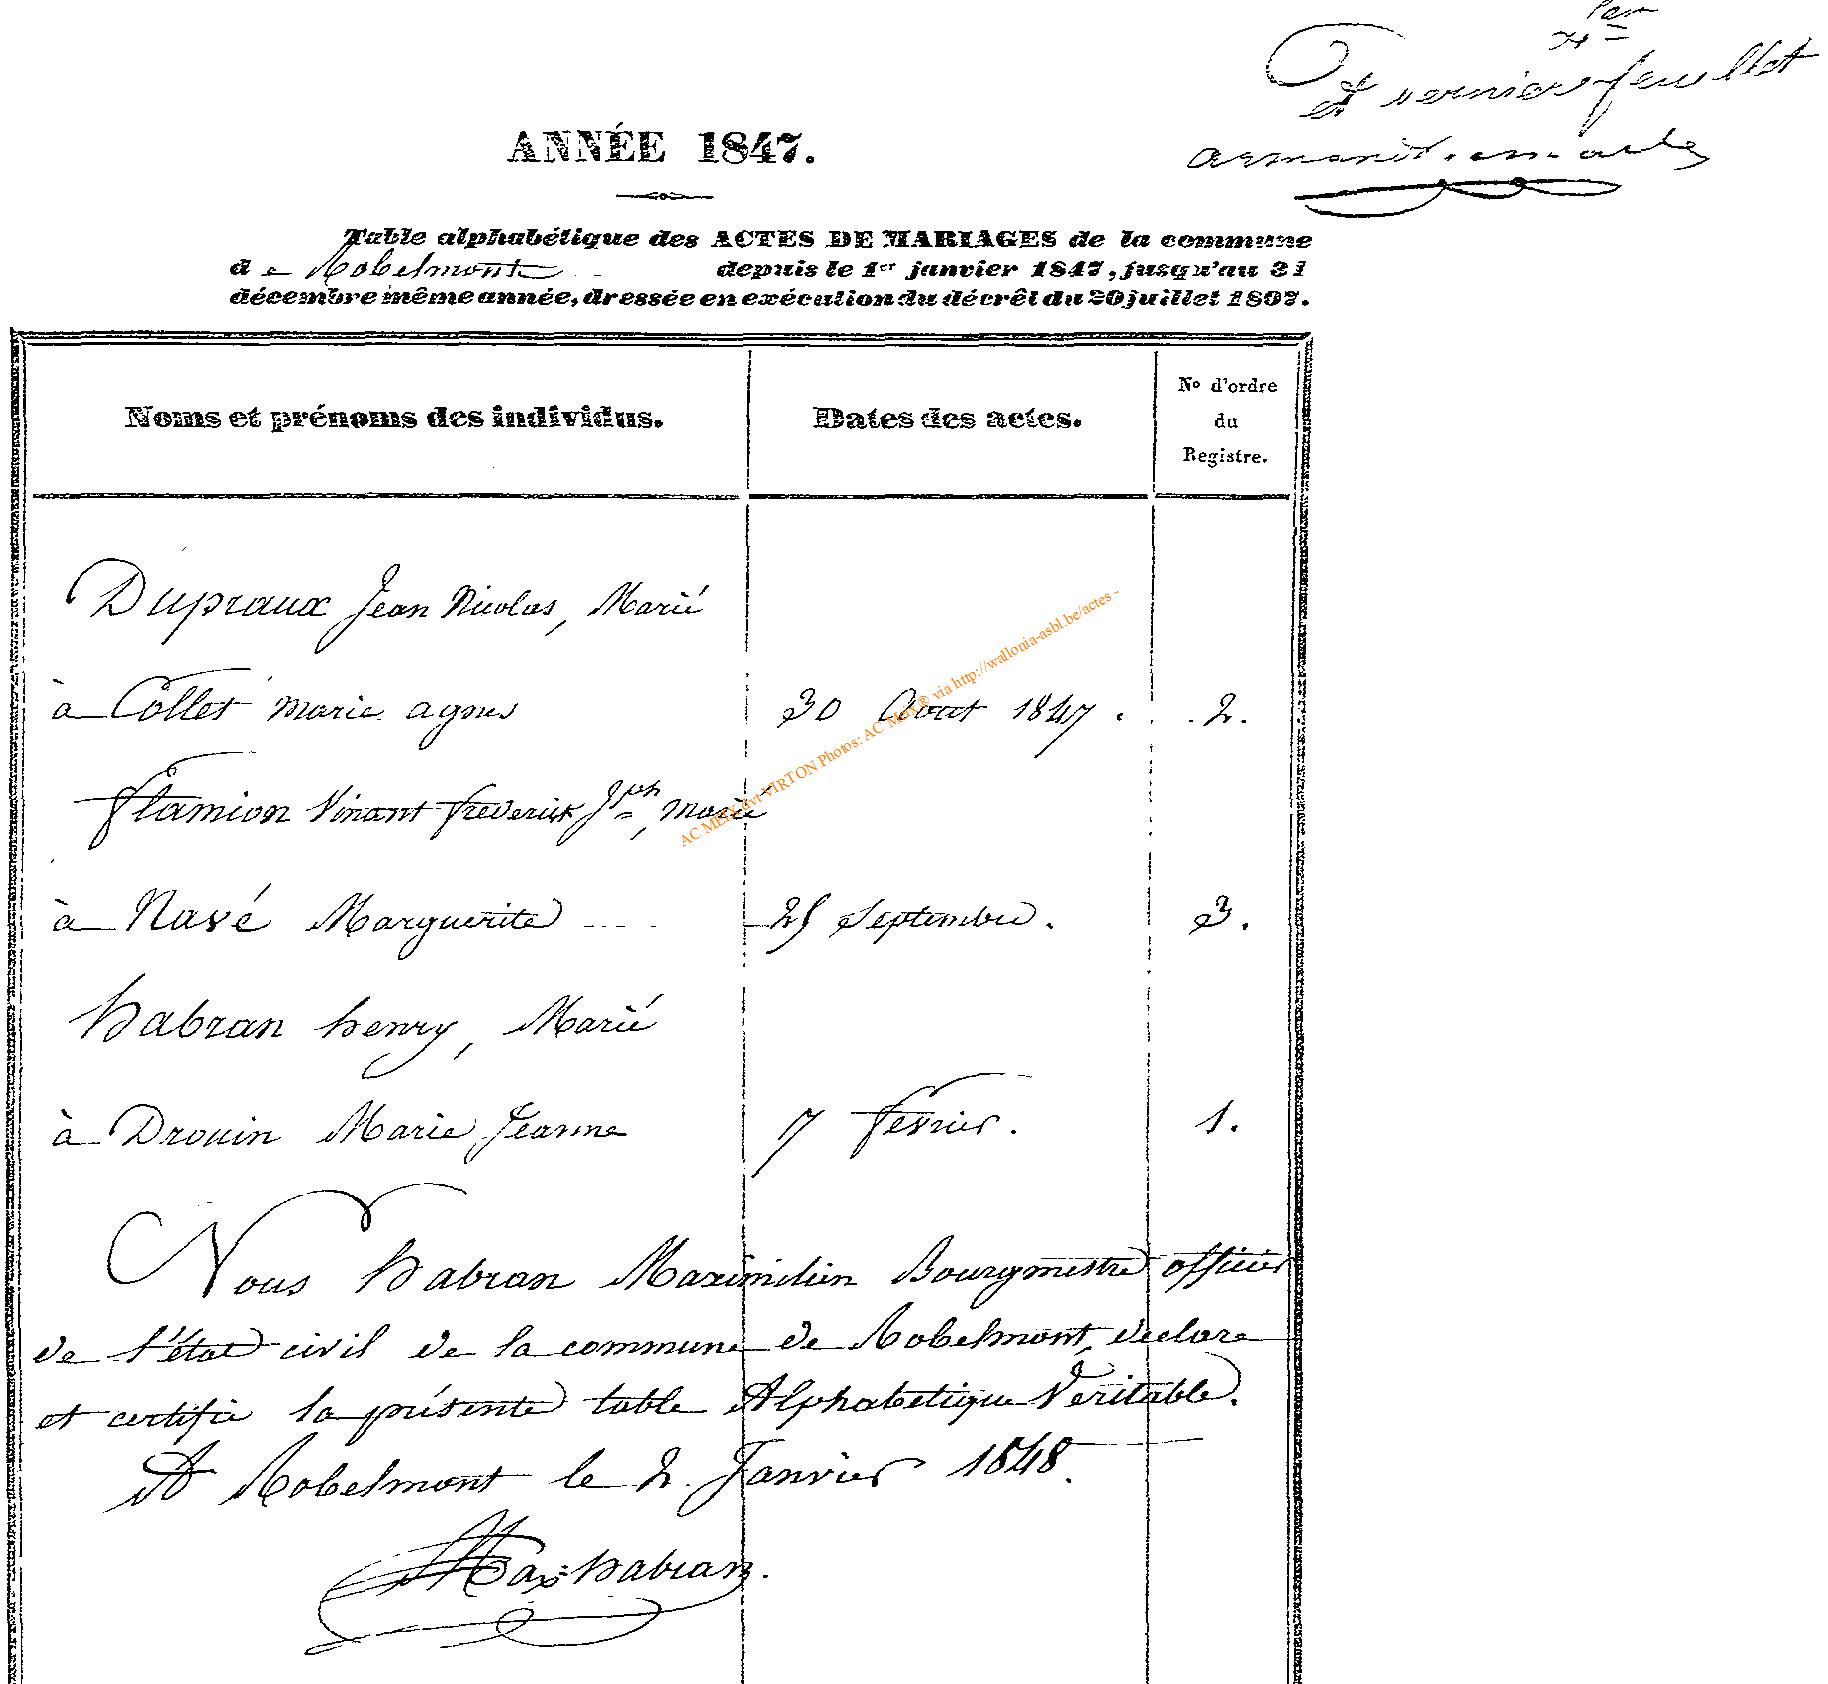 dernier feuillet
ANNÉE 1847.
Table alphabétique des ACTES DE MARIAGES de la commune
de Robelmont depuis le 1er janvier 1847, jusqu'au 31
décembre même année, dressée en exécution du décrêt du 20 juillet 1807.
Noms et prénoms des individus. Dates des actes. No d'ordre du Registre.
Dupraux Jean Nicolas, Marié
à Collet marie agnes 30 Aout 1847. 2.
Flamion Vinant frederick Jph, marié
à Navé Marguerite 25 Septembre. 3.
habran henry, Marié
à Drouin Marie Jeanne 7 fevrier. 1.
Nous habran Maximilien Bourgmestre officier
de l'état civil de la commune de Robelmont, declare
et certifie la présente table Alphabetique Veritable.
A Robelmont le 2 Janvier 1848.
Max habran.
AC MEIX dvt VIRTON Photos: AC MEIX® via http://wallonia-asbl.be/actes -